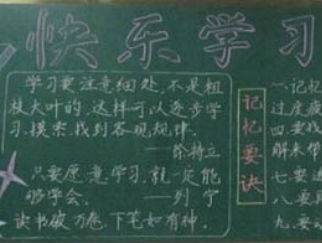 快乐学习
学习要注意细处,不是粗
枝大叶的,这样可以逐步学
习、摸索,找到客观规律。
——徐特立
只要愿意学习,就一定能
够学会。
——列宁
读书破万卷,下笔如有神。
记忆要诀
一.记忆
过度疲
四.要找
解来带
七.要进
八.要
九.要